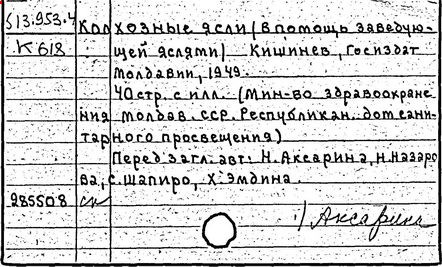 513.953.4 Колхозные ясли (в помощь заведую-
К 618 щей яслями) Кишинев, Госиздат
Молдавии, 1949.
40 стр. с илл. (Мин-во здравоохране
ния Молдав. ССР. Республикан. дом сани-
тарного просвещения)
Перед загл. авт.: Н. Аксарина, Н. Назаро
ва, С. Шапиро, Х. Эмдина.
285508 сн
1) Аксарина